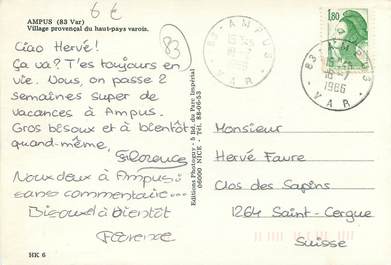 6 €
AMPUS (83 Var)
Village provençal du haut-pays varois.
83
Ciao Hervé!
Ça va? T'es toujours en
vie. Nous, on passe 2
semaines super de
vacances à Ampus.
Gros bisoux et à bientôt
quand-même,
Florence
Nous deux à Ampus:
sans commentaire...
Bisoux à bientôt
HK 6
Editions Photoguy - 5 Bd. du Parc Impérial
06000 NICE - Tél. 88-06-53
83 - AMPUS
1986
VAR
1,80
83 - AMPUS
1986
VAR
Monsieur
Hervé Favre
Clos des Sapins
1264 Saint-Cergue
Suisse